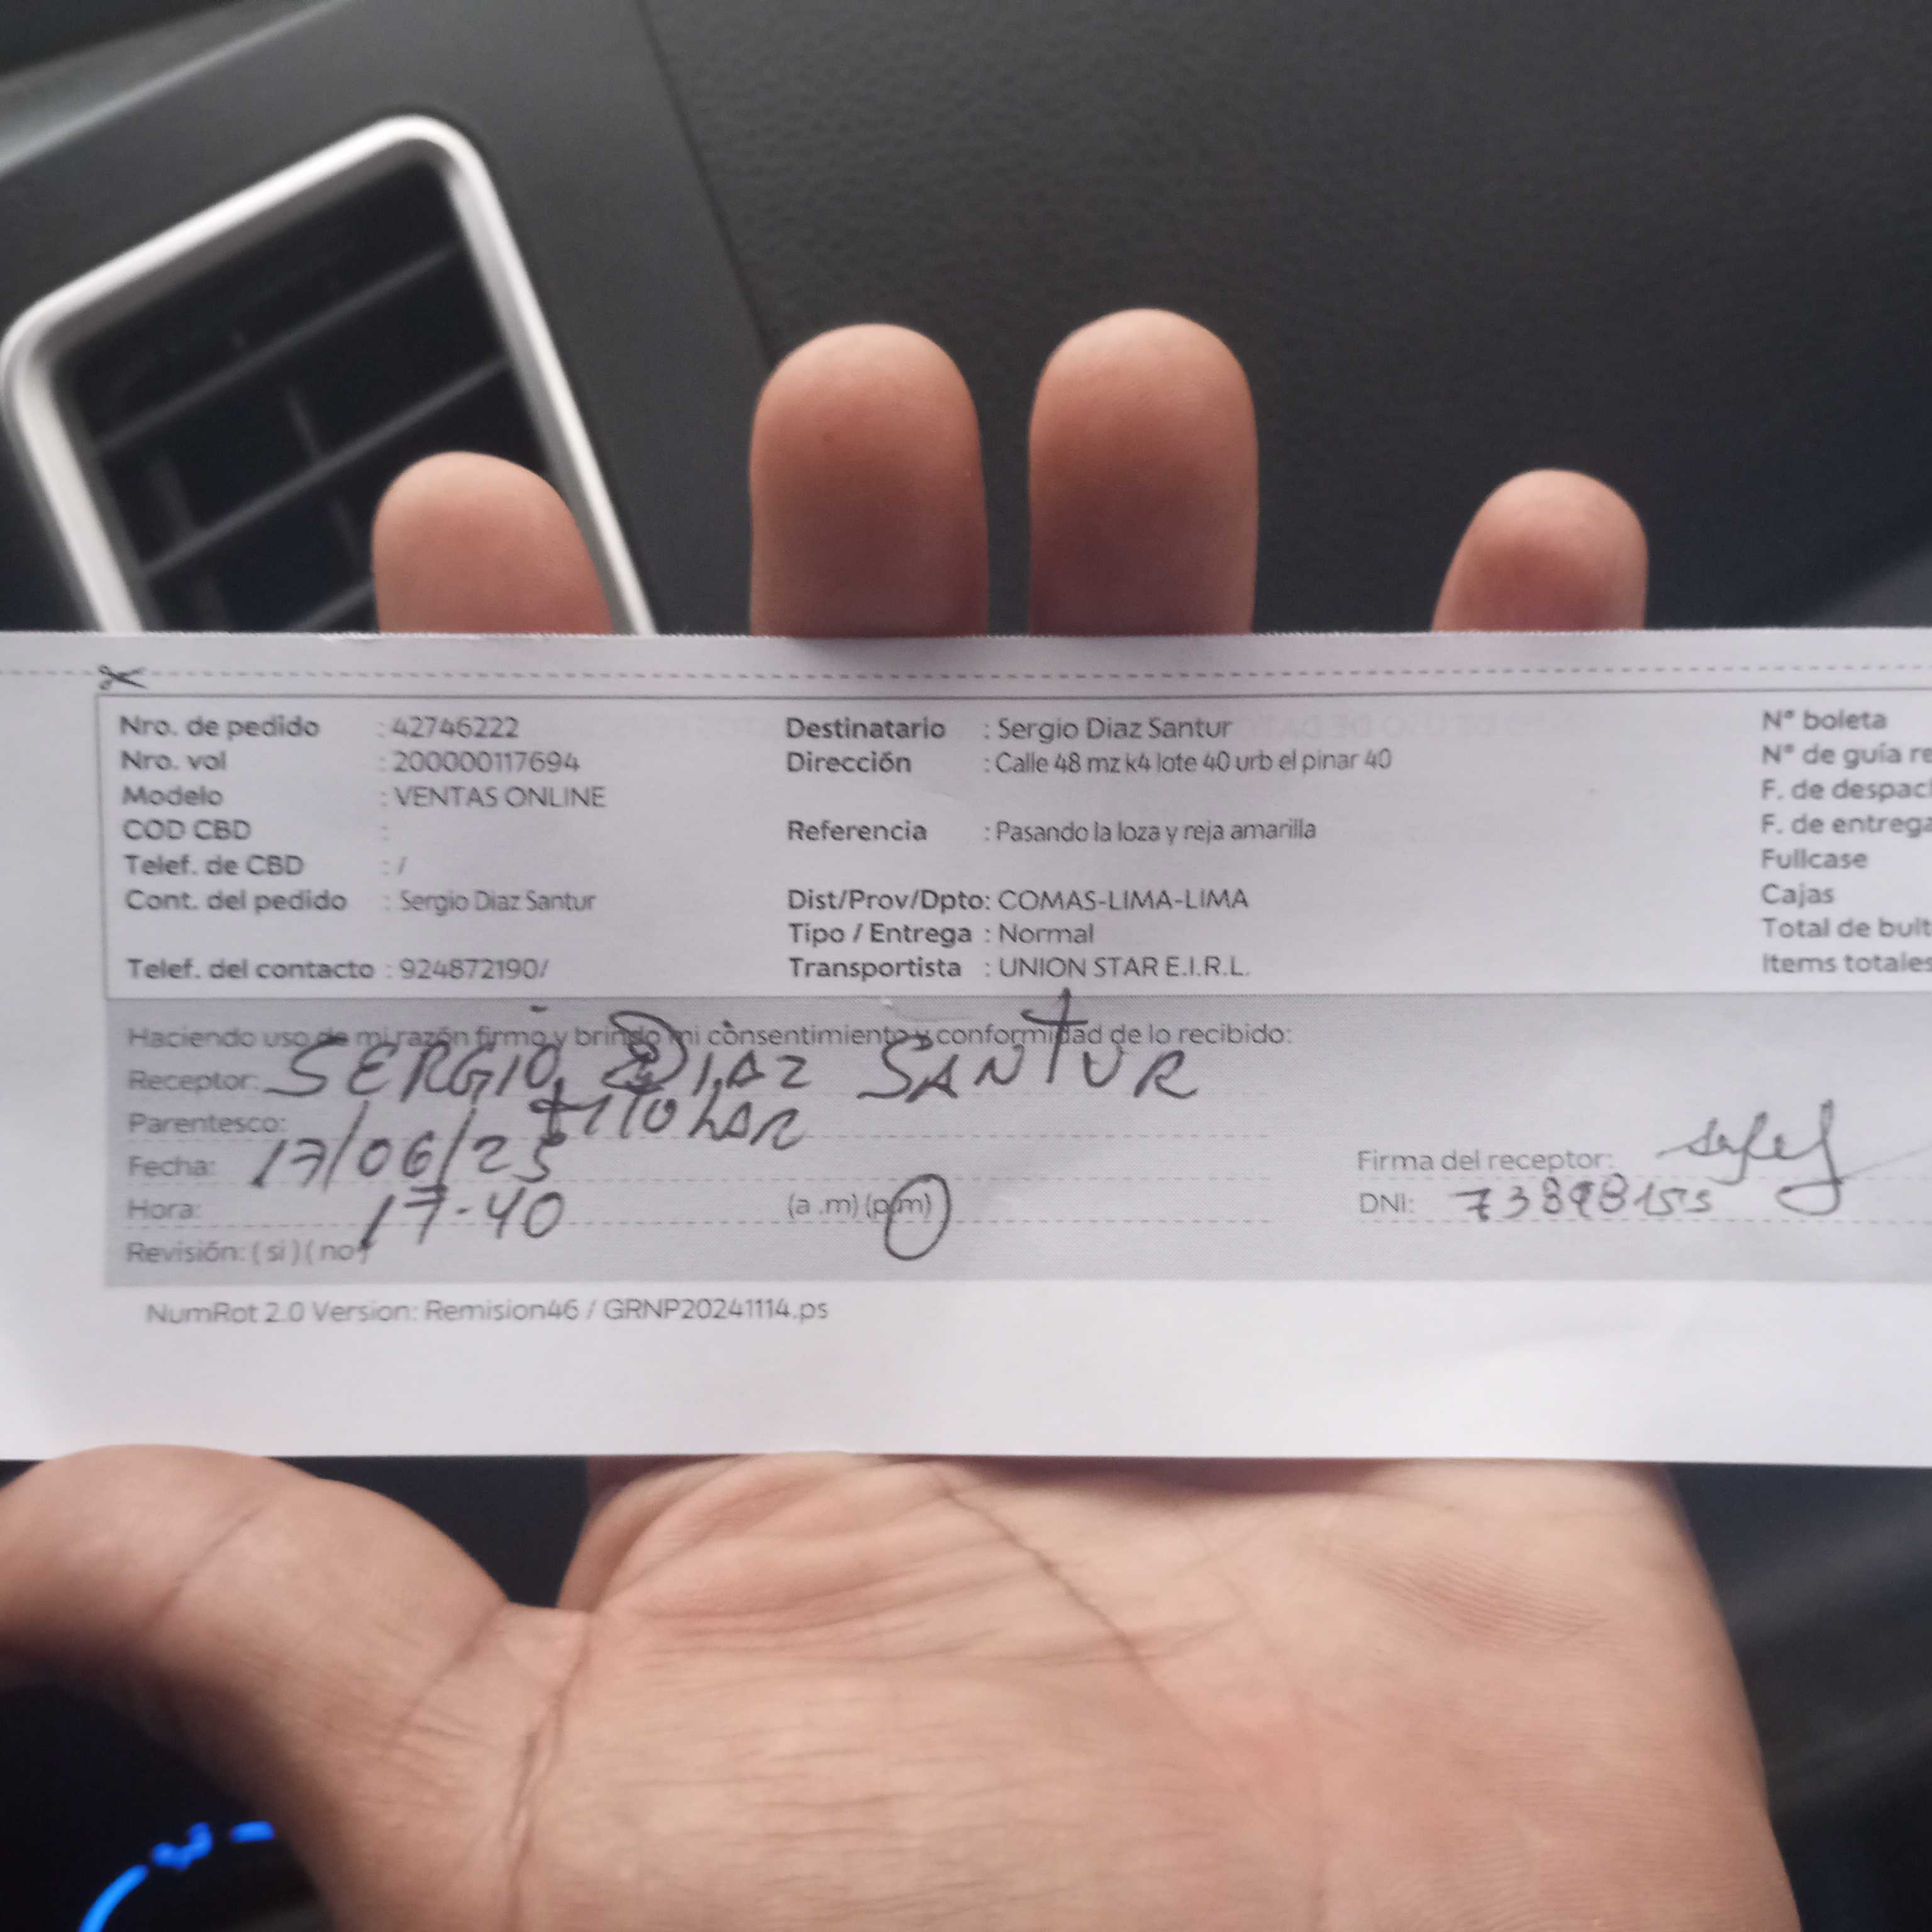 Nro. de pedido : 42746222 Destinatario : Sergio Diaz Santur N° boleta
Nro. vol : 200000117694 Dirección : Calle 48 mz k4 lote 40 urb el pinar 40 N° de guía re
Modelo : VENTAS ONLINE F. de despac
COD CBD : Referencia : Pasando la loza y reja amarilla F. de entrega
Telef. de CBD : / Fullcase
Cont. del pedido : Sergio Diaz Santur Dist/Prov/Dpto: COMAS-LIMA-LIMA Cajas
Tipo / Entrega : Normal Total de bult
Telef. del contacto : 924872190/ Transportista : UNION STAR E.I.R.L. Items totales
Haciendo uso de mi razón firmo y brindo mi consentimiento y conformidad de lo recibido:
Receptor: SERGIO DIAZ SANTUR
Parentesco: titular
Fecha: 17/06/25 Firma del receptor:
Hora: 17-40 (a .m) (p.m) DNI:
Revisión: ( si ) ( no )
NumRot 2.0 Version: Remision46 / GRNP20241114.ps